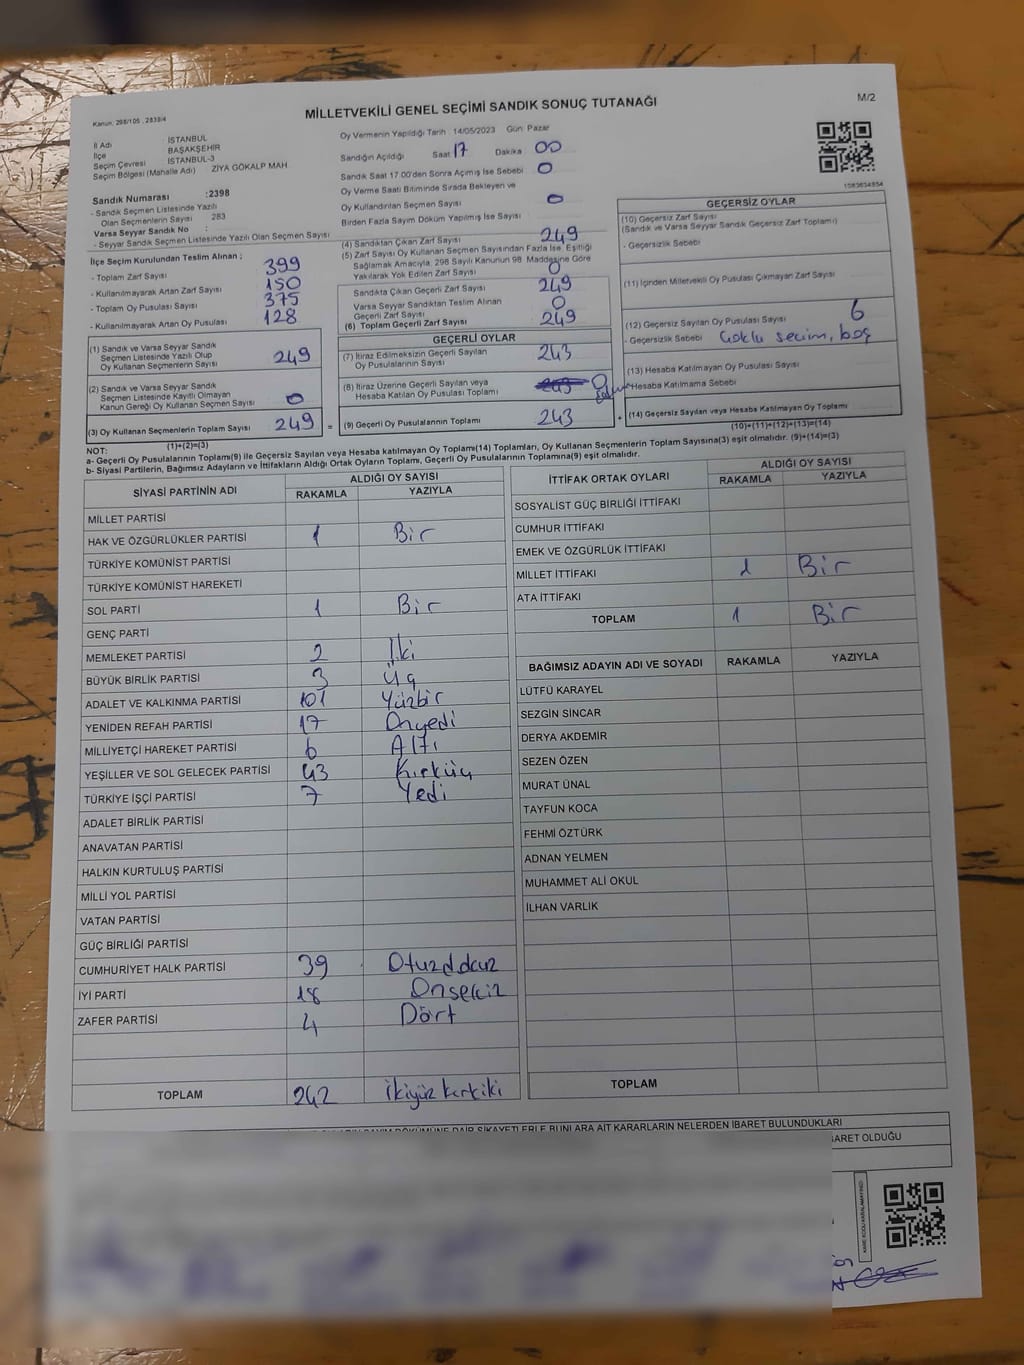 MİLLETVEKİLİ GENEL SEÇİMİ SANDIK SONUÇ TUTANAĞI
M/2
Kanun: 298/105 , 2839/4
İl Adı İSTANBUL
İlçe BAŞAKŞEHİR
Seçim Çevresi İSTANBUL-3
Seçim Bölgesi (Mahalle Adı) : ZİYA GÖKALP MAH.
Sandık Numarası :2398
- Sandık Seçmen Listesinde Yazılı
Olan Seçmenlerin Sayısı 283
Varsa Seyyar Sandık No :
- Seyyar Sandık Seçmen Listesinde Yazılı Olan Seçmen Sayısı
Oy Vermenin Yapıldığı Tarih 14/05/2023 Gün Pazar
Sandığın Açıldığı Saat 17 Dakika 00
Sandık Saat 17.00'den Sonra Açımış İse Sebebi 0
Oy Verme Saati Bitiminde Sırada Bekleyen ve
Oy Kullandırılan Seçmen Sayısı 0
Birden Fazla Sayım Döküm Yapılmış İse Sayısı
1083634554
İlçe Seçim Kurulundan Teslim Alınan ;
- Toplam Zarf Sayısı 399
- Kullanılmayarak Artan Zarf Sayısı 150
- Toplam Oy Pusulası Sayısı 375
- Kullanılmayarak Artan Oy Pusulası 128
(1) Sandık ve Varsa Seyyar Sandık
Seçmen Listesinde Yazılı Olup
Oy Kullanan Seçmenlerin Sayısı 249
(2) Sandık ve Varsa Seyyar Sandık
Seçmen Listesinde Kayıtlı Olmayan
Kanun Gereği Oy Kullanan Seçmen Sayısı 0
(3) Oy Kullanan Seçmenlerin Toplam Sayısı 249 =
(1)+(2)=(3)
(4) Sandıktan Çıkan Zarf Sayısı 249
(5) Zarf Sayısı Oy Kullanan Seçmen Sayısından Fazla İse, Eşitliği
Sağlamak Amacıyla, 298 Sayılı Kanunun 98. Maddesine Göre
Yakılarak Yok Edilen Zarf Sayısı 0
Sandıkta Çıkan Geçerli Zarf Sayısı 249
Varsa Seyyar Sandıktan Teslim Alınan
Geçerli Zarf Sayısı 0
(6) Toplam Geçerli Zarf Sayısı 249
GEÇERLİ OYLAR
(7) İtiraz Edilmeksizin Geçerli Sayılan
Oy Pusulalarının Sayısı 243
(8) İtiraz Üzerine Geçerli Sayılan veya
Hesaba Katılan Oy Pusulası Toplamı 0
(9) Geçerli Oy Pusulalarının Toplamı 243 +
GEÇERSİZ OYLAR
(10) Geçersiz Zarf Sayısı
(Sandık ve Varsa Seyyar Sandık Geçersiz Zarf Toplamı)
- Geçersizlik Sebebi
(11) İçinden Milletvekili Oy Pusulası Çıkmayan Zarf Sayısı
(12) Geçersiz Sayılan Oy Pusulası Sayısı 6
- Geçersizlik Sebebi Çoklu seçim, boş
(13) Hesaba Katılmayan Oy Pusulası Sayısı
Hesaba Katılmama Sebebi
(14) Geçersiz Sayılan veya Hesaba Katılmayan Oy Toplamı
(10)+(11)+(12)+(13)=(14)
NOT:
a- Geçerli Oy Pusulalarının Toplamı(9) ile Geçersiz Sayılan veya Hesaba katılmayan Oy Toplamı(14) Toplamları, Oy Kullanan Seçmenlerin Toplam Sayısına(3) eşit olmalıdır. (9)+(14)=(3)
b- Siyasi Partilerin, Bağımsız Adayların ve İttifakların Aldığı Ortak Oyların Toplamı, Geçerli Oy Pusulalarının Toplamına(9) eşit olmalıdır.
SİYASİ PARTİNİN ADI ALDIĞI OY SAYISI
RAKAMLA YAZIYLA
MİLLET PARTİSİ
HAK VE ÖZGÜRLÜKLER PARTİSİ 1 Bir
TÜRKİYE KOMÜNİST PARTİSİ
TÜRKİYE KOMÜNİST HAREKETİ
SOL PARTİ 1 Bir
GENÇ PARTİ
MEMLEKET PARTİSİ 2 İki
BÜYÜK BİRLİK PARTİSİ 3 Üç
ADALET VE KALKINMA PARTİSİ 101 Yüzbir
YENİDEN REFAH PARTİSİ 17 Onyedi
MİLLİYETÇİ HAREKET PARTİSİ 6 Altı
YEŞİLLER VE SOL GELECEK PARTİSİ 43 Kırküç
TÜRKİYE İŞÇİ PARTİSİ 7 Yedi
ADALET BİRLİK PARTİSİ
ANAVATAN PARTİSİ
HALKIN KURTULUŞ PARTİSİ
MİLLİ YOL PARTİSİ
VATAN PARTİSİ
GÜÇ BİRLİĞİ PARTİSİ
CUMHURİYET HALK PARTİSİ 39 Otuzdokuz
İYİ PARTİ 18 Onsekiz
ZAFER PARTİSİ 4 Dört
TOPLAM 242 İkiyüz kırkiki
İTTİFAK ORTAK OYLARI ALDIĞI OY SAYISI
RAKAMLA YAZIYLA
SOSYALİST GÜÇ BİRLİĞİ İTTİFAKI
CUMHUR İTTİFAKI
EMEK VE ÖZGÜRLÜK İTTİFAKI
MİLLET İTTİFAKI 1 Bir
ATA İTTİFAKI
TOPLAM 1 Bir
BAĞIMSIZ ADAYIN ADI VE SOYADI RAKAMLA YAZIYLA
LÜTFÜ KARAYEL
SEZGİN SİNCAR
DERYA AKDEMİR
SEZEN ÖZEN
MURAT ÜNAL
TAYFUN KOCA
FEHMİ ÖZTÜRK
ADNAN YELMEN
MUHAMMET ALİ OKUL
İLHAN VARLIK
TOPLAM
DAİR ŞİKAYETLERLE BUNLARA AİT KARARLARIN NELERDEN İBARET BULUNDUKLARI
İBARET OLDUĞU